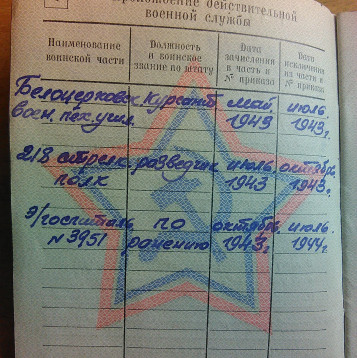 Прохождение действительной
военной службы
Наименование воинской части
Должность и воинское звание по штату
Дата зачисления в часть и № приказа
Дата исключения из части и № приказа
Белоцерковск. курсант май июль
воен. пех. учил. 1943 1943г.
218 стрелк. разведчик июль октябрь
полк 1943 1943г.
Э/госпиталь по октябрь июль
№ 3951 ранению 1943г. 1944г.